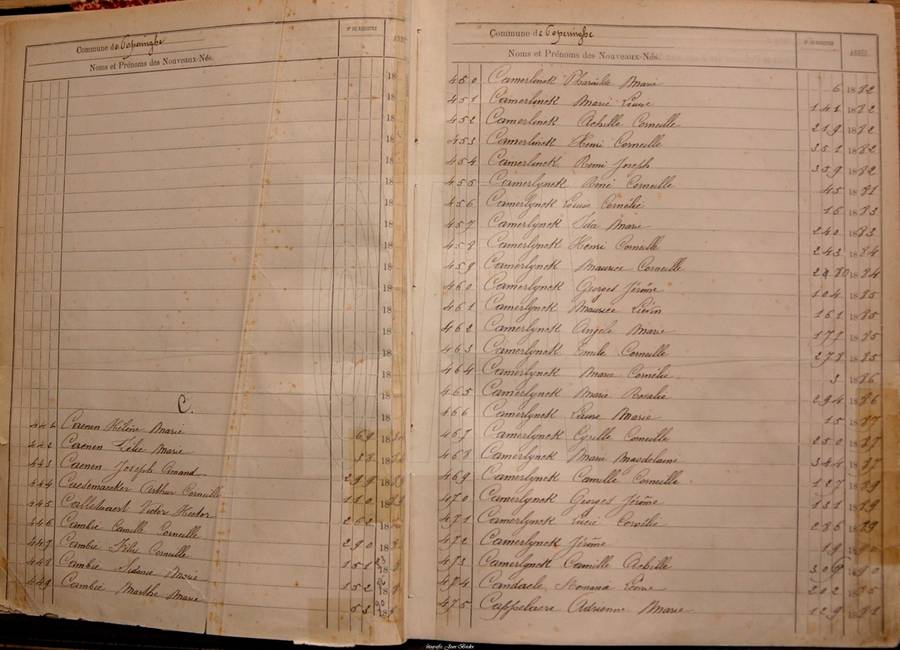 Commune de Poperinghe
Noms et Prénoms des Nouveaux-Nés.
N° DU REGISTRE
C.
442 Caenen Hélène Marie 69 18
442 Caenen Élie Marie 38 18
443 Caenen Joseph Amand 299 18
444 Caesemaecker Arthur Corneille 110 18
445 Callewaert Victor Hector 262 18
446 Cambie Camille Corneille 290 18
447 Cambie Corneille 151 18
448 Cambie Sidonie Marie 152 18
449 Cambie Marthe Marie 53 18
Commune de Poperinghe
Noms et Prénoms des Nouveaux-Nés.
N° DU REGISTRE
ANNÉE
450 Camerlinck Pharaïlde Marie 6 1882
451 Camerlinck Marie Louise 141 1882
452 Camerlinck Achille Corneille 219 1882
453 Camerlinck Henri Corneille 351 1882
454 Camerlinck Remi Joseph 359 1882
455 Camerlynck René Corneille 45 1881
456 Camerlynck Louis Cornélie 15 1883
457 Camerlynck Ida Marie 240 1883
458 Camerlynck Henri Corneille 243 1884
459 Camerlynck Maurice Corneille 1884
460 Camerlynck Georges Jérôme 104 1885
461 Camerlynck Maurice Liévin 161 1885
462 Camerlynck Angèle Marie 177 1885
463 Camerlynck Emile Corneille 278 1885
464 Camerlynck Marie Cornélie 3 1886
465 Camerlynck Marie Rosalie 294 1886
466 Camerlynck Laure Marie 15 1887
467 Camerlynck Cyrille Corneille 250 1887
468 Camerlynck Marie Magdelaine 344 1887
469 Camerlynck Camille Corneille 127 1889
470 Camerlynck Georges Jérôme 111 1889
471 Camerlynck Lucie 286 1889
472 Camerlynck Jérôme 19 1890
473 Camerlynck Camille Achille 309 1890
474 Candaele Romania 202 1885
475 Cappelaere Adrienne Marie 129 1881